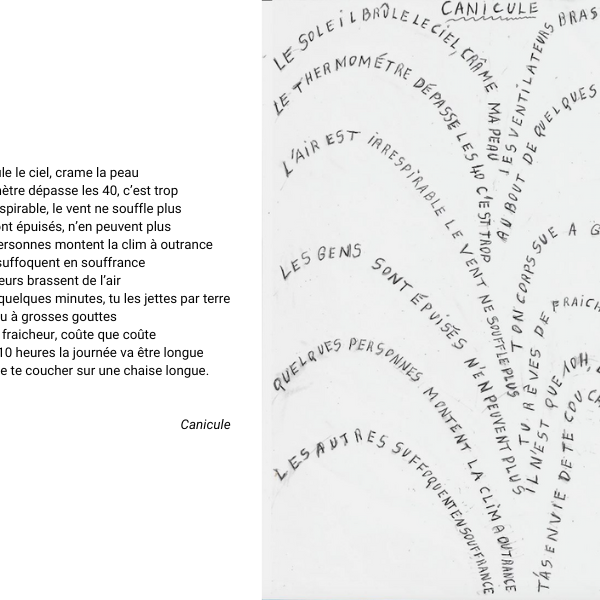 le le ciel, crame la peau
ètre dépasse les 40, c'est trop
spirable, le vent ne souffle plus
nt épuisés, n'en peuvent plus
ersonnes montent la clim à outrance
suffoquent en souffrance
eurs brassent de l'air
quelques minutes, tu les jettes par terre
u à grosses gouttes
fraicheur, coûte que coûte
10 heures la journée va être longue
e te coucher sur une chaise longue.
Canicule
CANICULE
LE SOLEIL BRÛLE LE CIEL, CRÂME MA PEAU
LE THERMOMÉTRE DÉPASSE LES 40 C'EST TROP
L'AIR EST IRRESPIRABLE LE VENT NE SOUFFLE PLUS
LES GENS SONT ÉPUISÉS N'EN PEUVENT PLUS
QUELQUES PERSONNES MONTENT LA CLIM A OUTRANCE
LES AUTRES SUFFOQUENT EN SOUFFRANCE
LES VENTILATEURS BRAS
AU BOUT DE QUELQUES
TON CORPS SUE A G
TU RÊVES DE FRAICH
IL N'EST QUE 10H,
T'AS ENVIE DE TE COUC